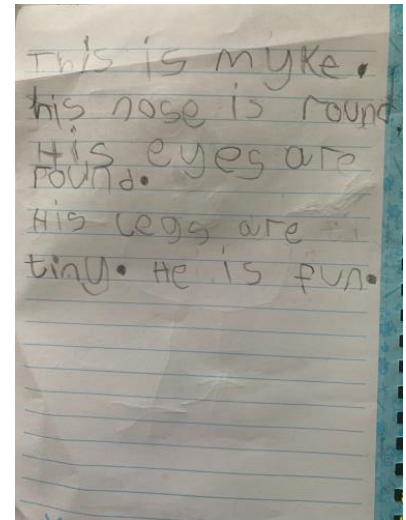 This is myke.
his nose is round.
His eyes are
round.
His legs are
tiny. He is fun.